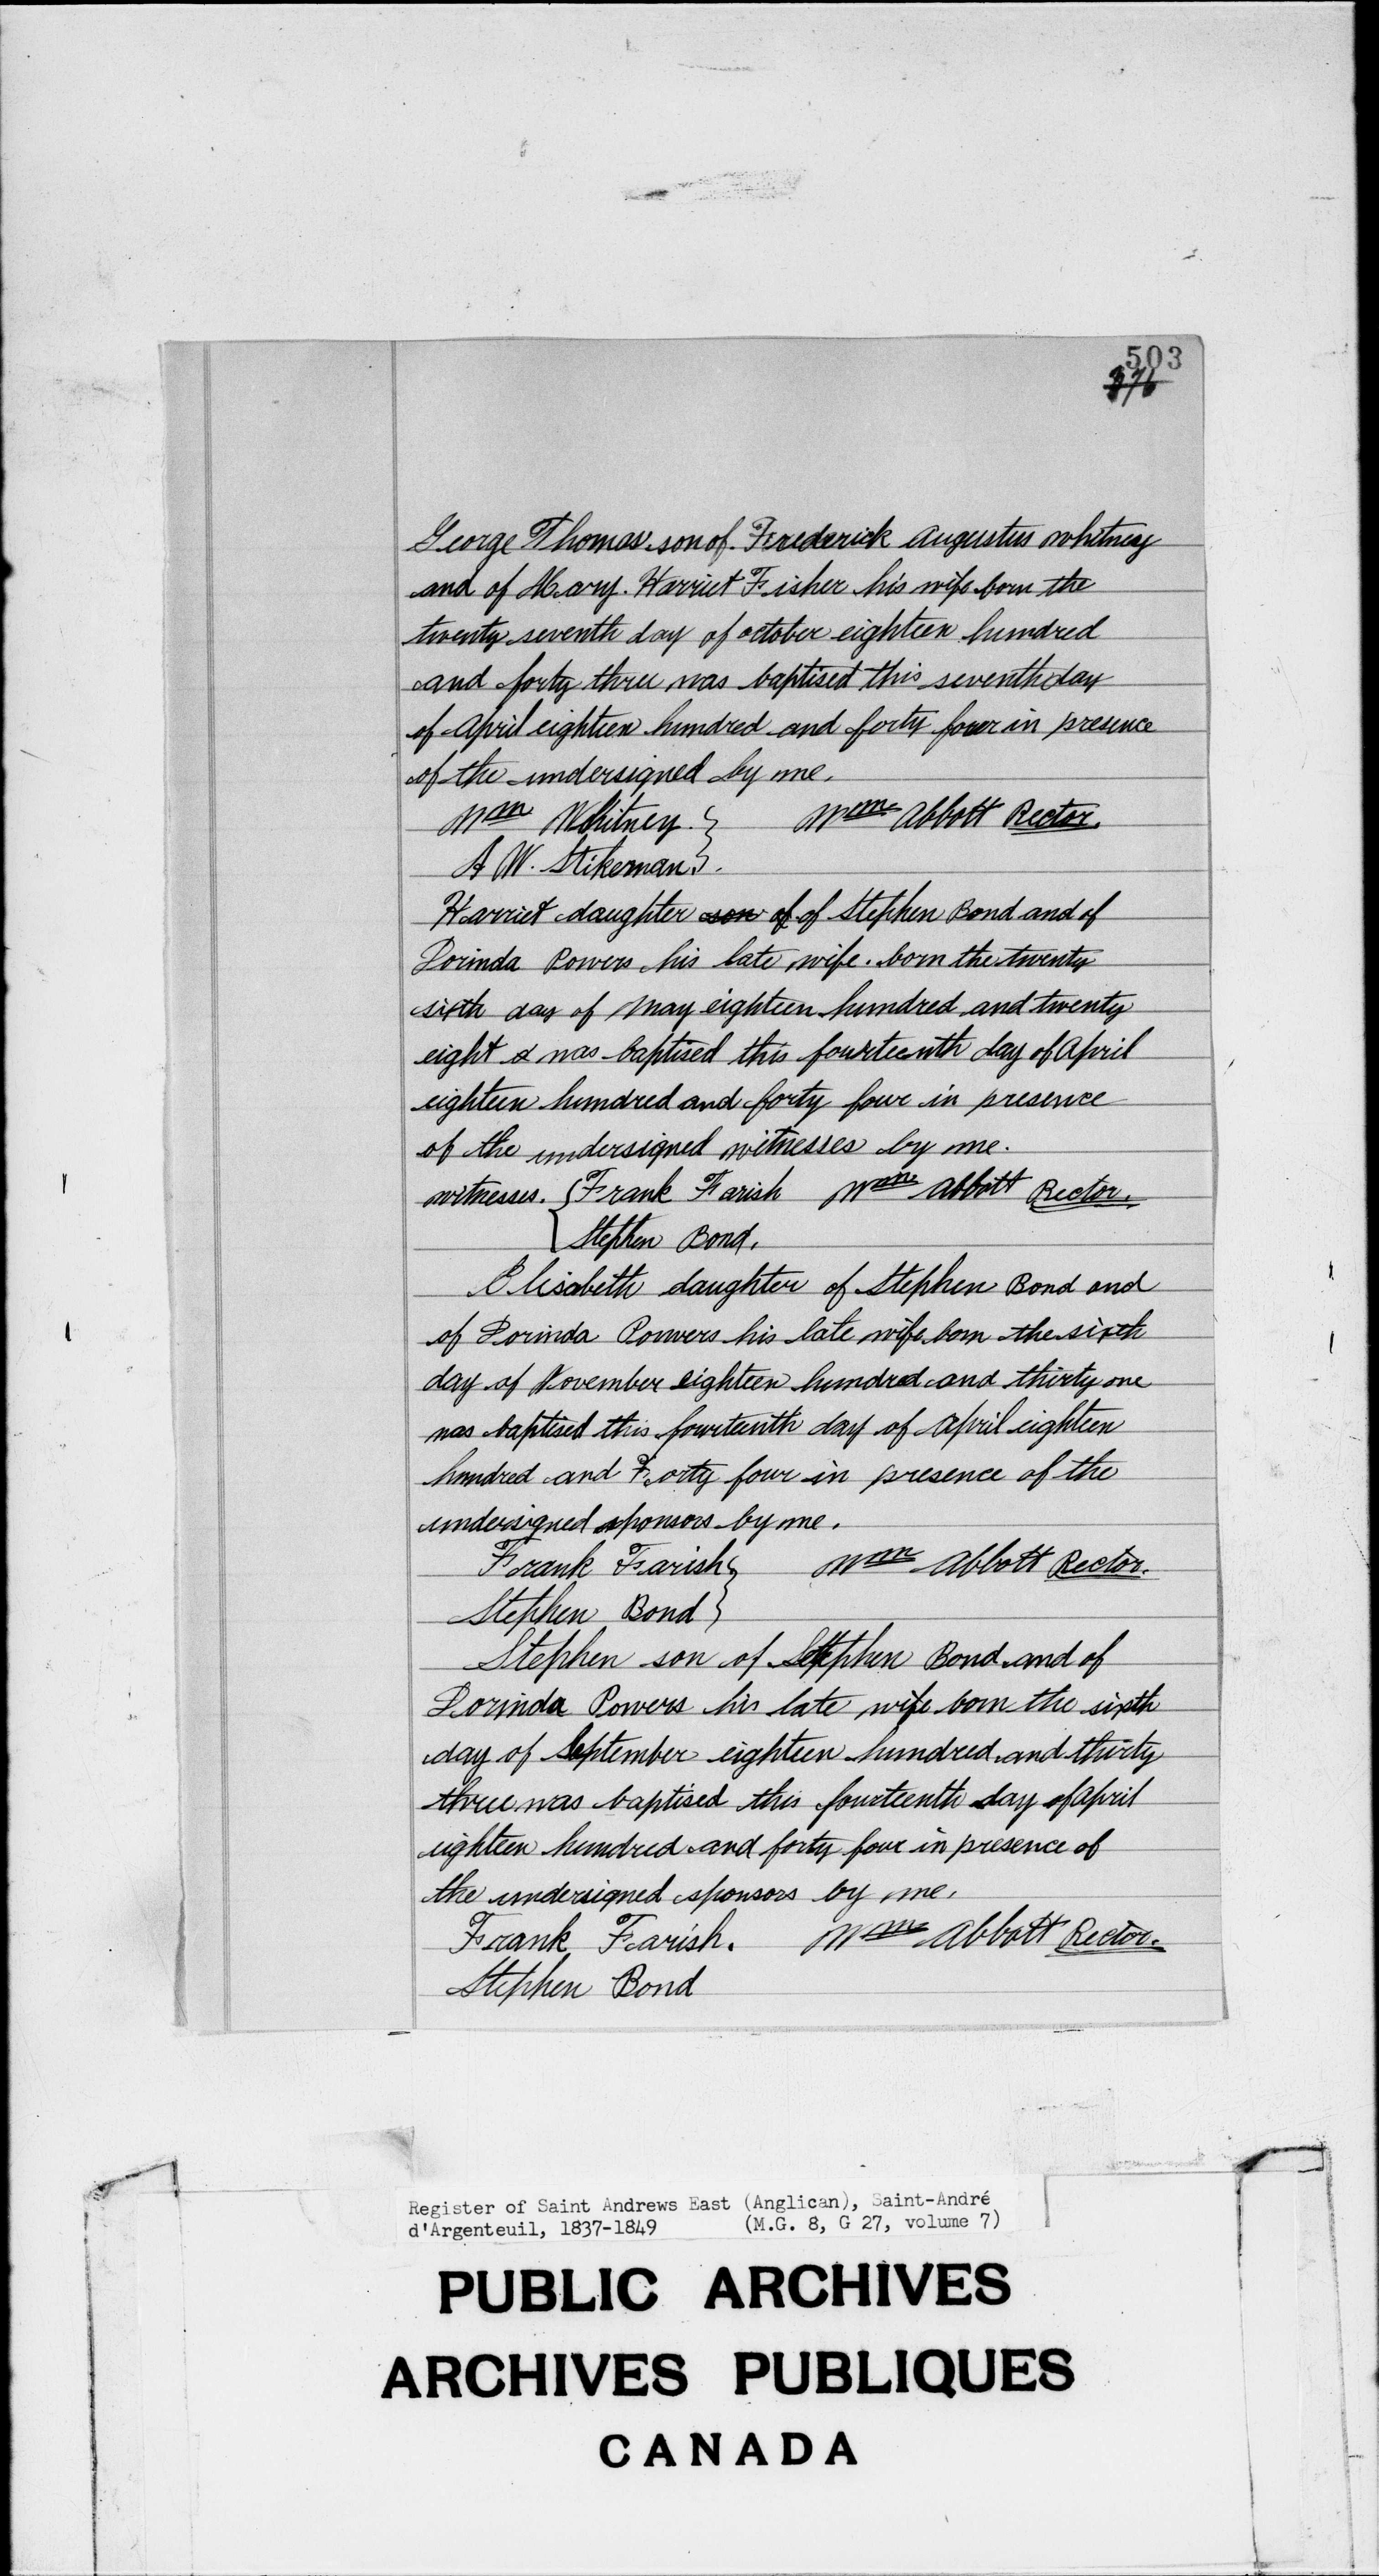 503
376
George Thomas son of Frederick Augustus Whitney
and of Mary Harriet Fisher his wife born the
twenty seventh day of october eighteen hundred
and forty three was baptised this seventh day
of April eighteen hundred and forty four in presence
of the undersigned by me.
Wm Whitney } Wm Abbott Rector.
A W. Stikeman }.
Harriet daughter son of of Stephen Bond and of
Dorinda Powers his late wife. born the twenty
sixth day of May eighteen hundred and twenty
eight & was baptised this fourteenth day of April
eighteen hundred and forty four in presence
of the undersigned witnesses by me.
witnesses. { Frank Farish Wm Abbott Rector.
{ Stephen Bond.
Elisabeth daughter of Stephen Bond and
of Dorinda Powers his late wife born the sixth
day of November eighteen hundred and thirty one
was baptised this fourteenth day of April eighteen
hundred and Forty four in presence of the
undersigned sponsors by me.
Frank Farish } Wm Abbott Rector.
Stephen Bond }
Stephen son of Stephen Bond and of
Dorinda Powers his late wife born the sixth
day of September eighteen hundred and thirty
three was baptised this fourteenth day of April
eighteen hundred and forty four in presence of
the undersigned sponsors by me.
Frank Farish. Wm Abbott Rector.
Stephen Bond
Register of Saint Andrews East (Anglican), Saint-André
d'Argenteuil, 1837-1849 (M.G. 8, G 27, volume 7)
PUBLIC ARCHIVES
ARCHIVES PUBLIQUES
CANADA